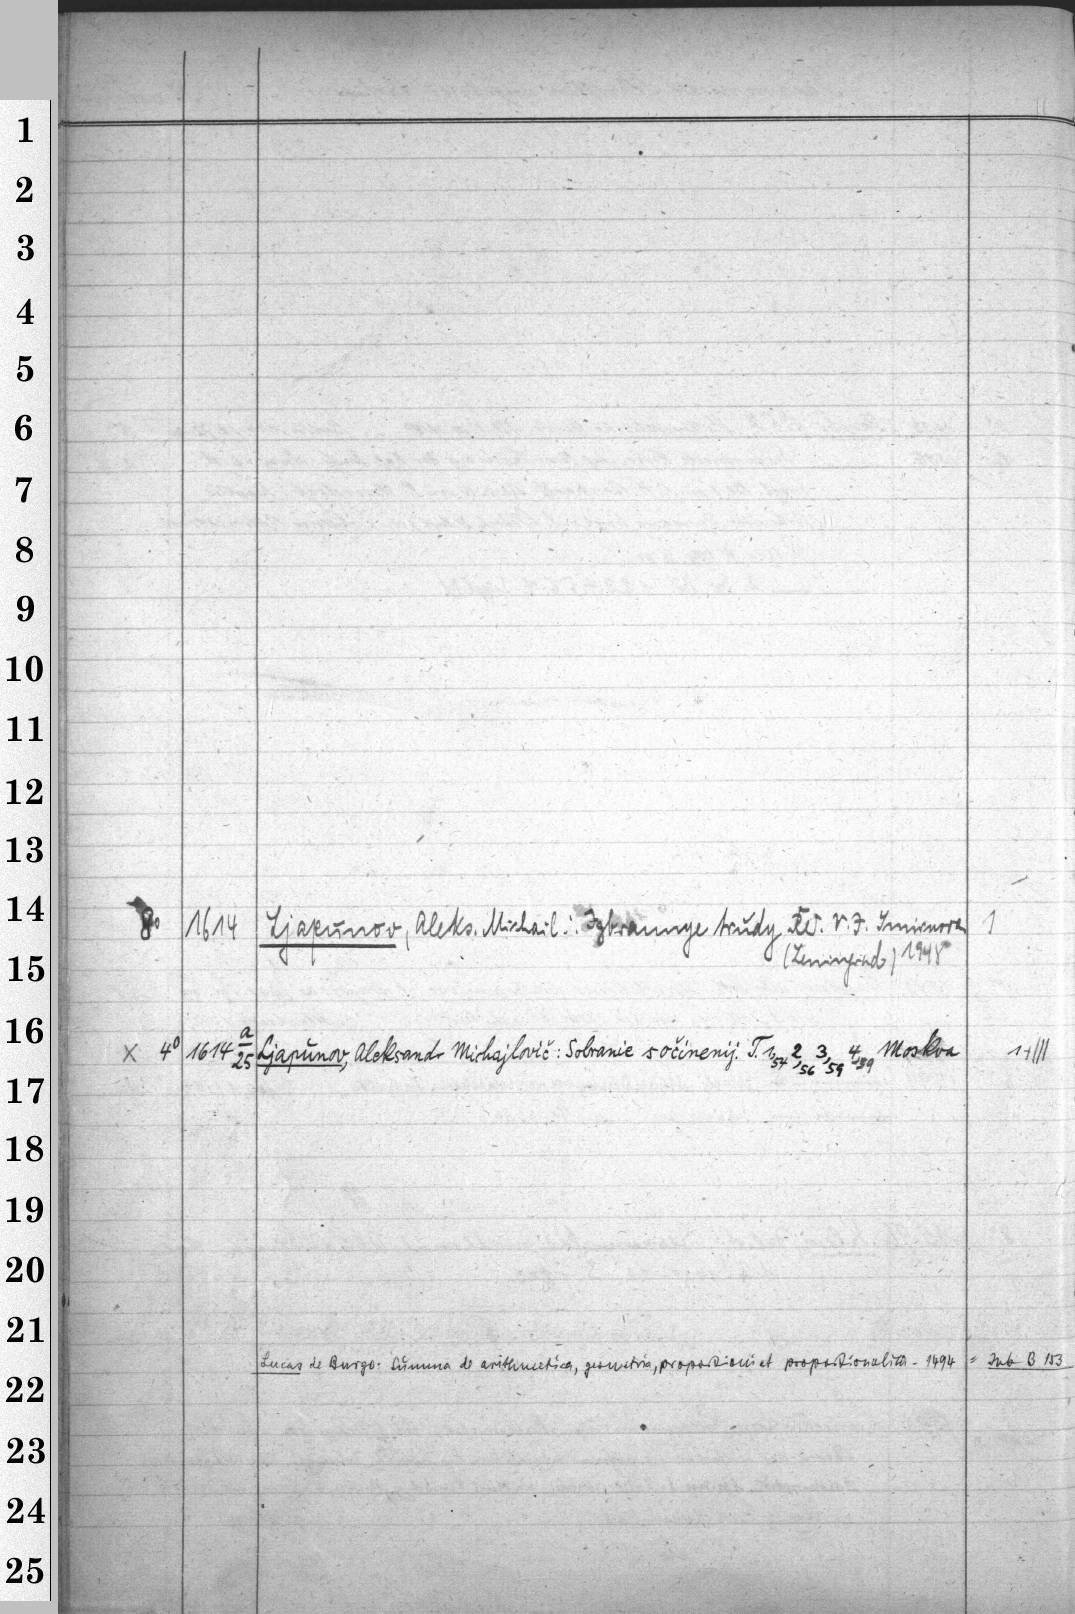 1
2
3
4
5
6
7
8
9
10
11
12
13
14
8° 1614 Ljapunov, Aleks. Michail.: Izbrannye trudy. Red. V. I. Smirnova 1
(Leningrad) 1948
15
16
X 4° 1614 a/25 Ljapunov, Aleksandr Michajlovič: Sobranie sočinenij. T. 1,54 2,56 3,59 4,59 Moskva 1-III
17
18
19
20
21
Lucas de Burgo: Summa de arithmetica, geometria, proportioni et proportionalita - 1494 = Ink B 153
22
23
24
25